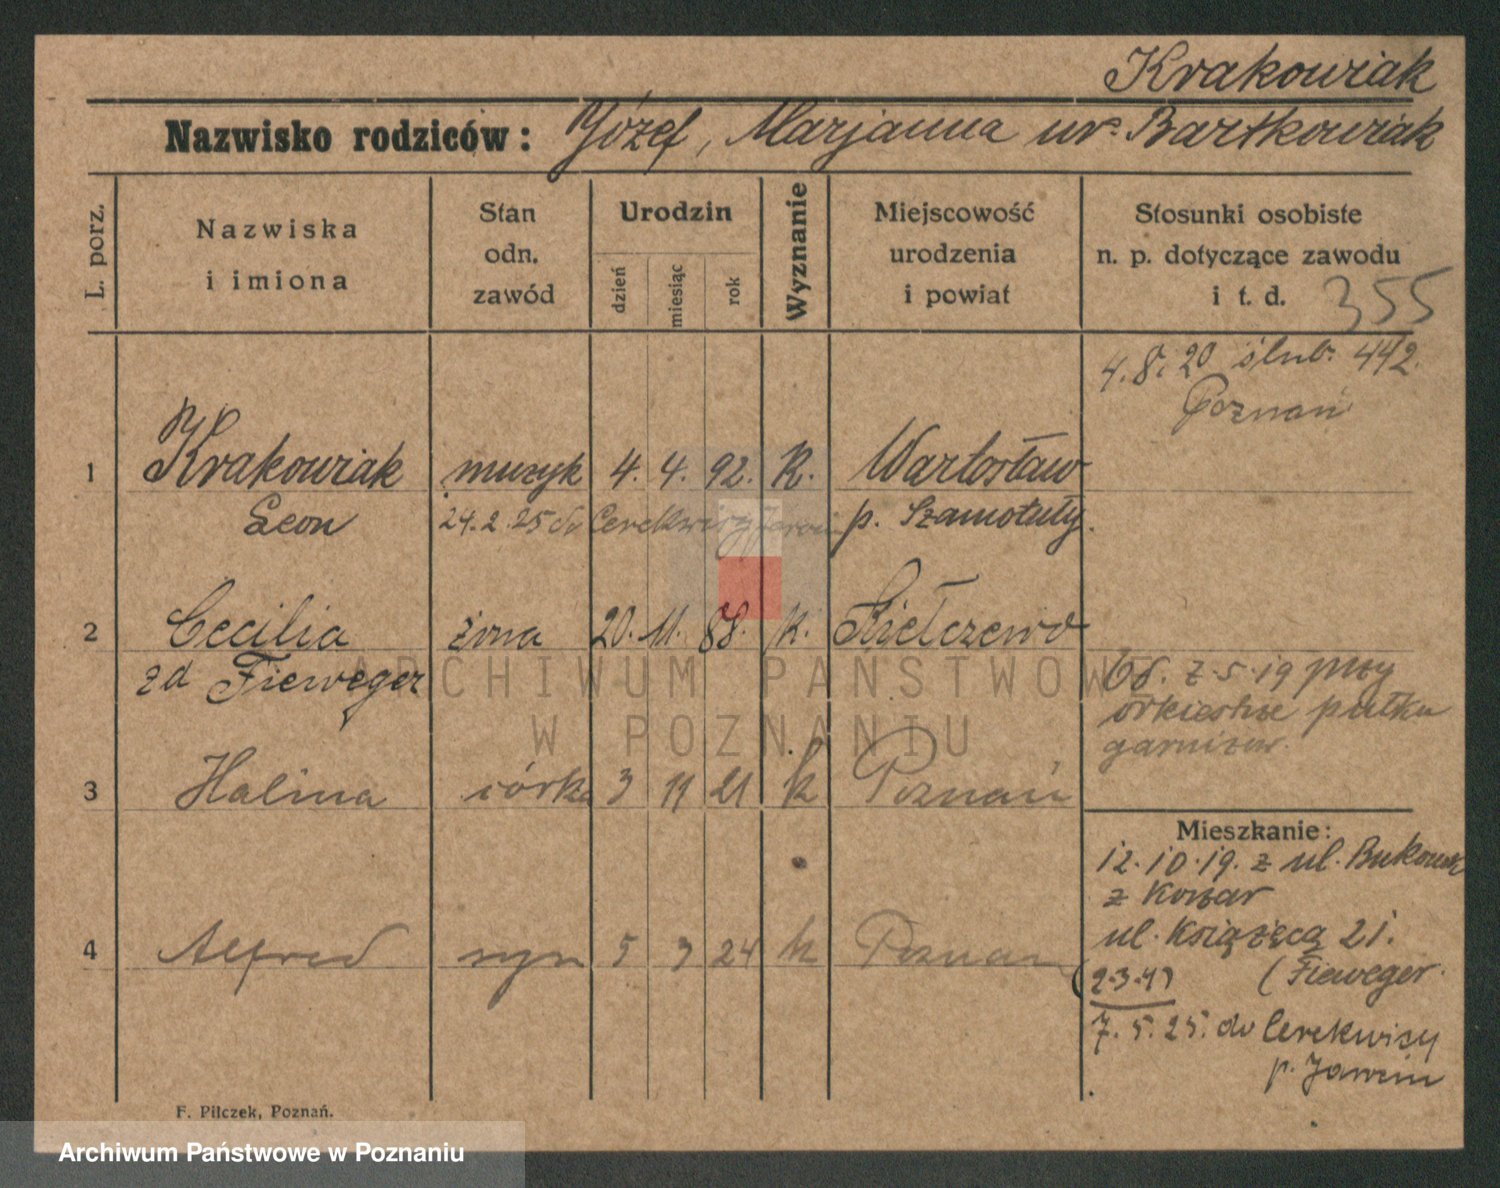 Krakowiak
Nazwisko rodziców: Józef, Marjanna ur. Bartkowiak
L. porz.
Nazwiska
i imiona
Stan
odn.
zawód
Urodzin
dzień
miesiąc
rok
Wyznanie
Miejscowość
urodzenia
i powiat
Stosunki osobiste
n. p. dotyczące zawodu
i t. d.
355
4.8.20 ślub. 442.
Poznań
1 Krakowiak muzyk 4. 4. 92. K. Wartosław
Leon 24.2.25 do Cerekwicy p. Szamotuły.
2 Cecilia żona 20. 11. 88. k. Kiełczewo
zd Fieweger
Od. 2.5.19 przy
orkiestrze pułku
garnizow.
3 Halina córka 3 11 21 k Poznań
Mieszkanie:
12.10.19. z ul. Bukowsk
z Koszar
ul. Książęca 21.
(Fieweger
4 Alfred syn 5 3 24 k Poznań
7.5.25. do Cerekwicy
p. Jarocin
F. Pilczek, Poznań.
ARCHIWUM PAŃSTWOWE
W POZNANIU
Archiwum Państwowe w Poznaniu